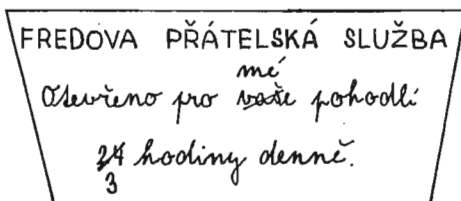 FREDOVA PŘÁTELSKÁ SLUŽBA
mé
Otevřeno pro vaše pohodlí
24 hodiny denně.
3